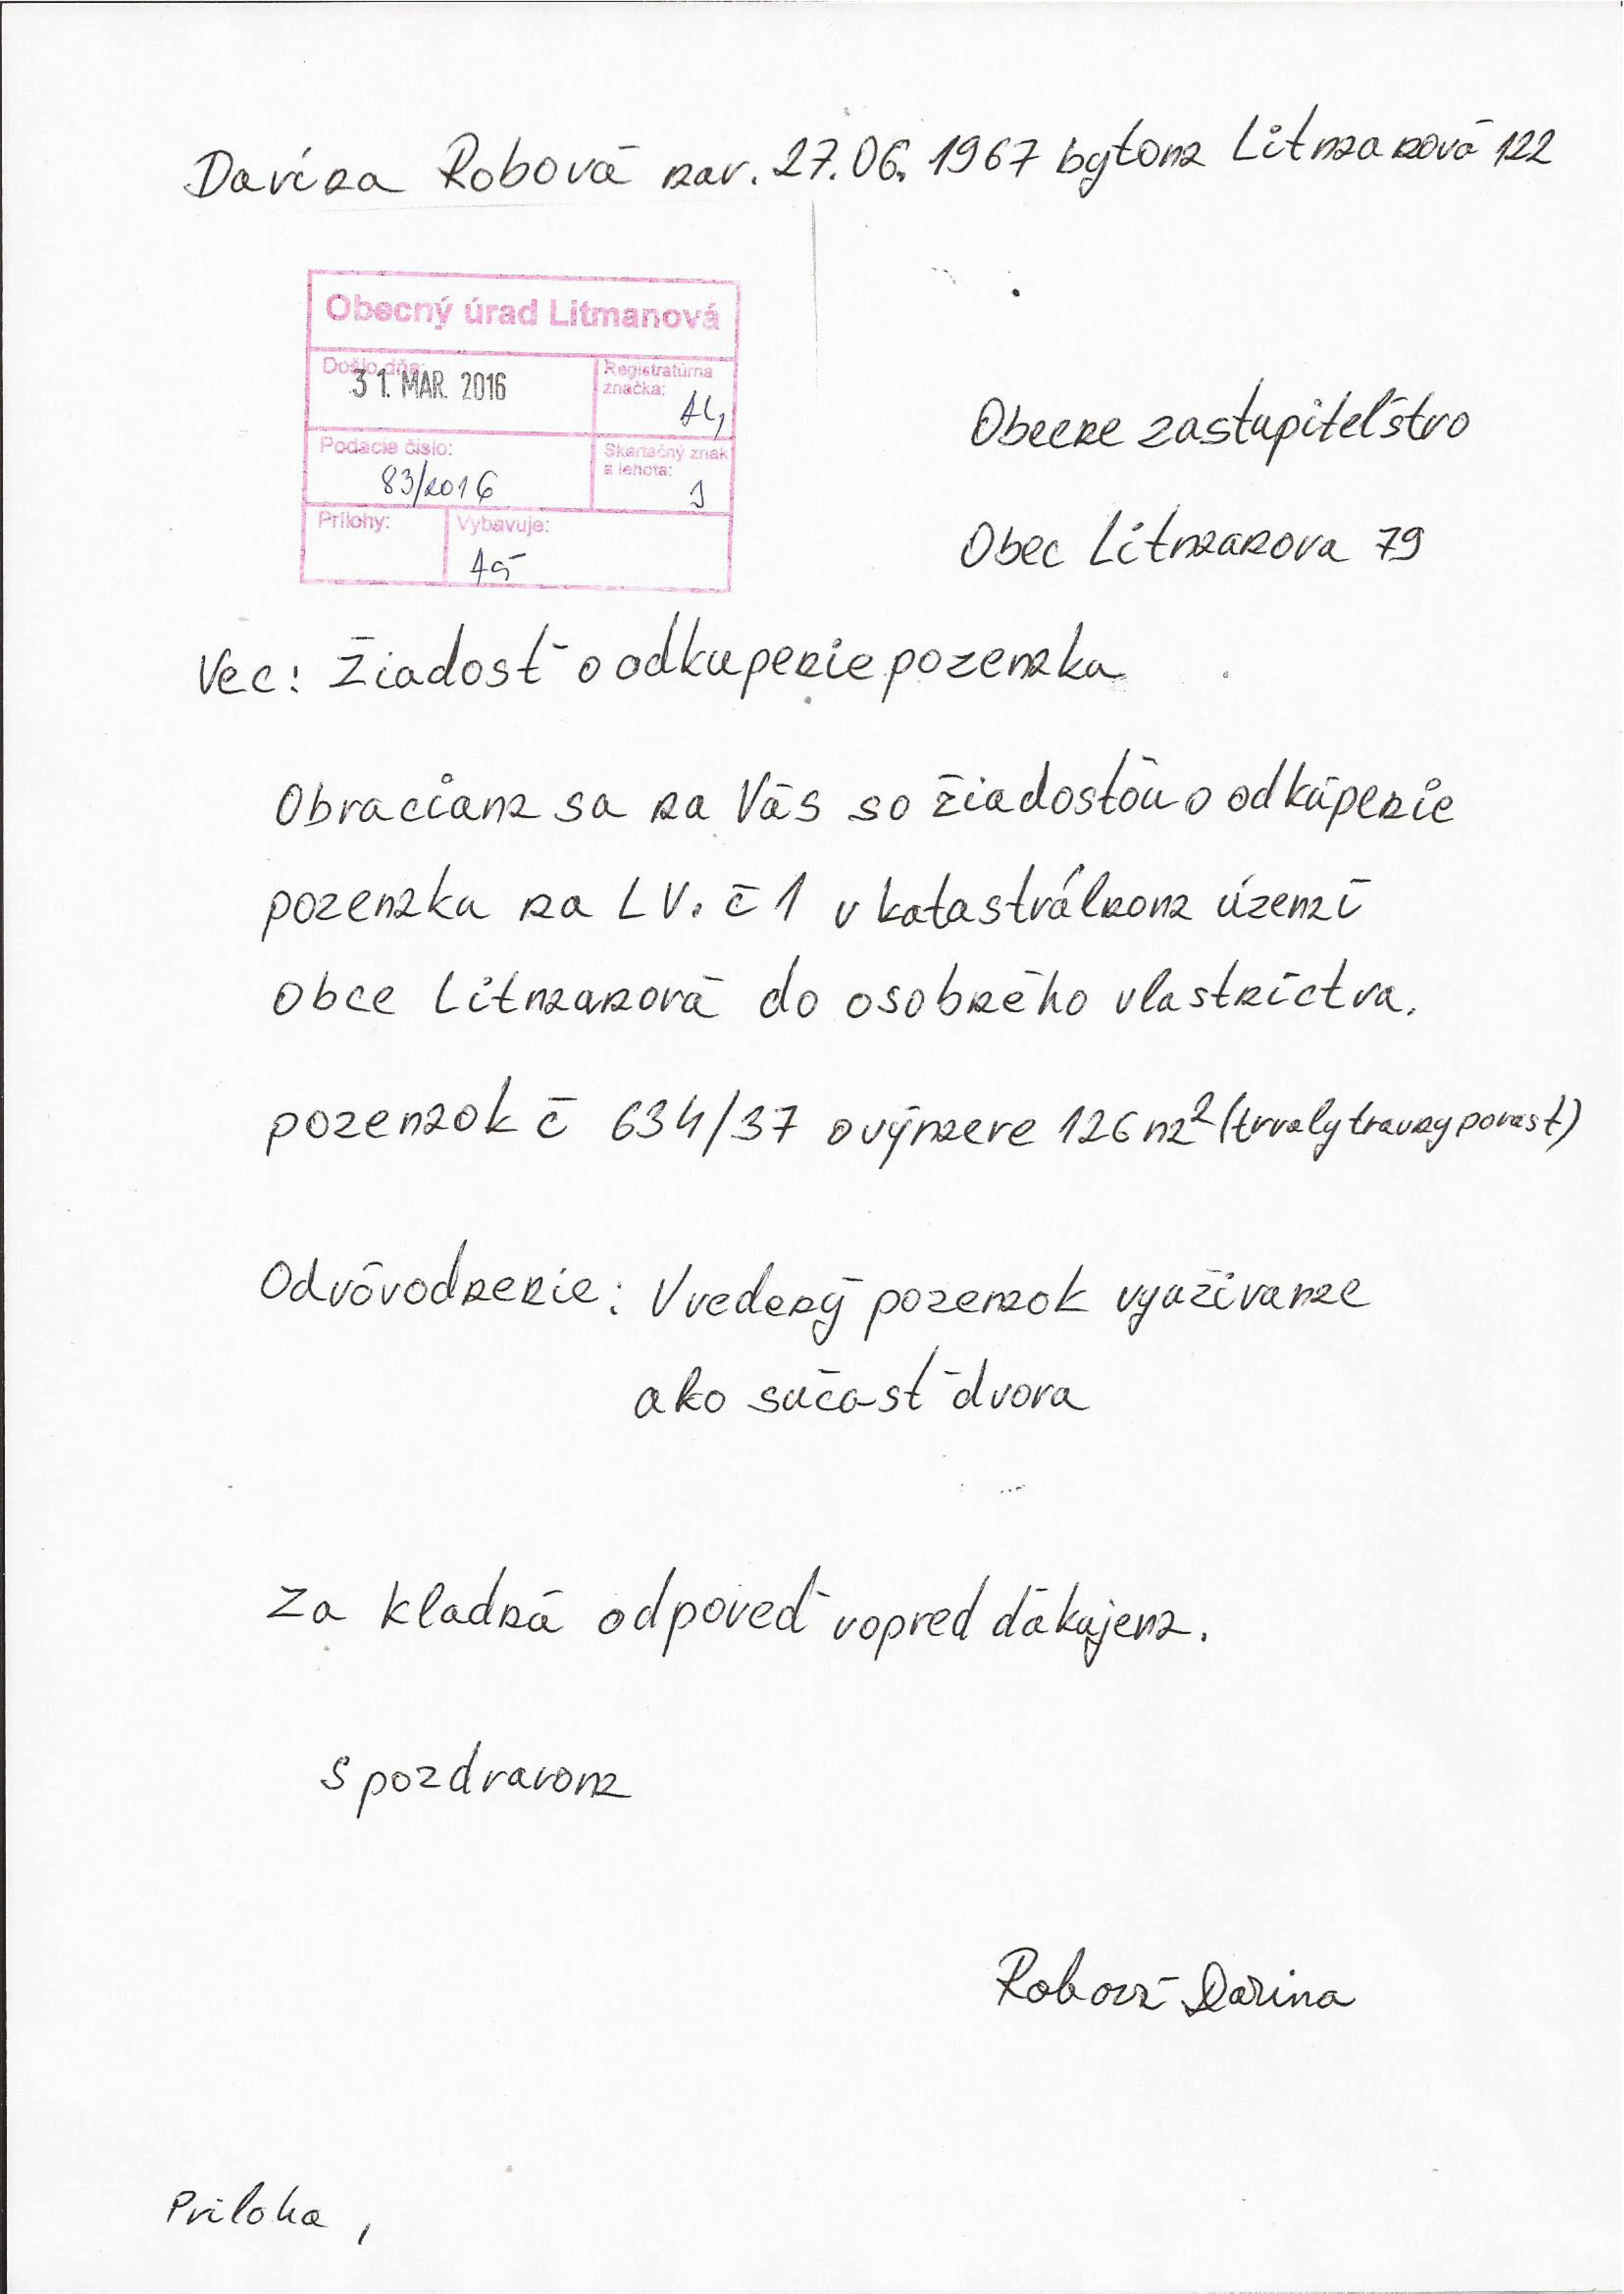 Darina Robová nar. 27.06.1967 bytom Litmanová 122
Obecný úrad Litmanová
Došlo dňa:
31. MAR. 2016
Registratúrna
značka:
Podacie číslo:
83/2016
Skartačný znak
a lehota:
Prílohy:
Vybavuje:
Obecne zastupiteľstvo
Obec Litmanova 79
Vec: Žiadosť o odkupenie pozemku
Obraciam sa na Vás so žiadosťou o odkúpenie
pozemku na LV. č 1 v katastrálnom územi
Obce Litmanová do osobného vlastníctva.
pozemok č 634/37 o výmere 126 m² (trvaly travny porast)
Odvôvodnenie: Uvedený pozemok využívame
ako súčasť dvora
Za kladnú odpoveď vopred ďakujem.
S pozdravom
Robová Darina
Priloha,